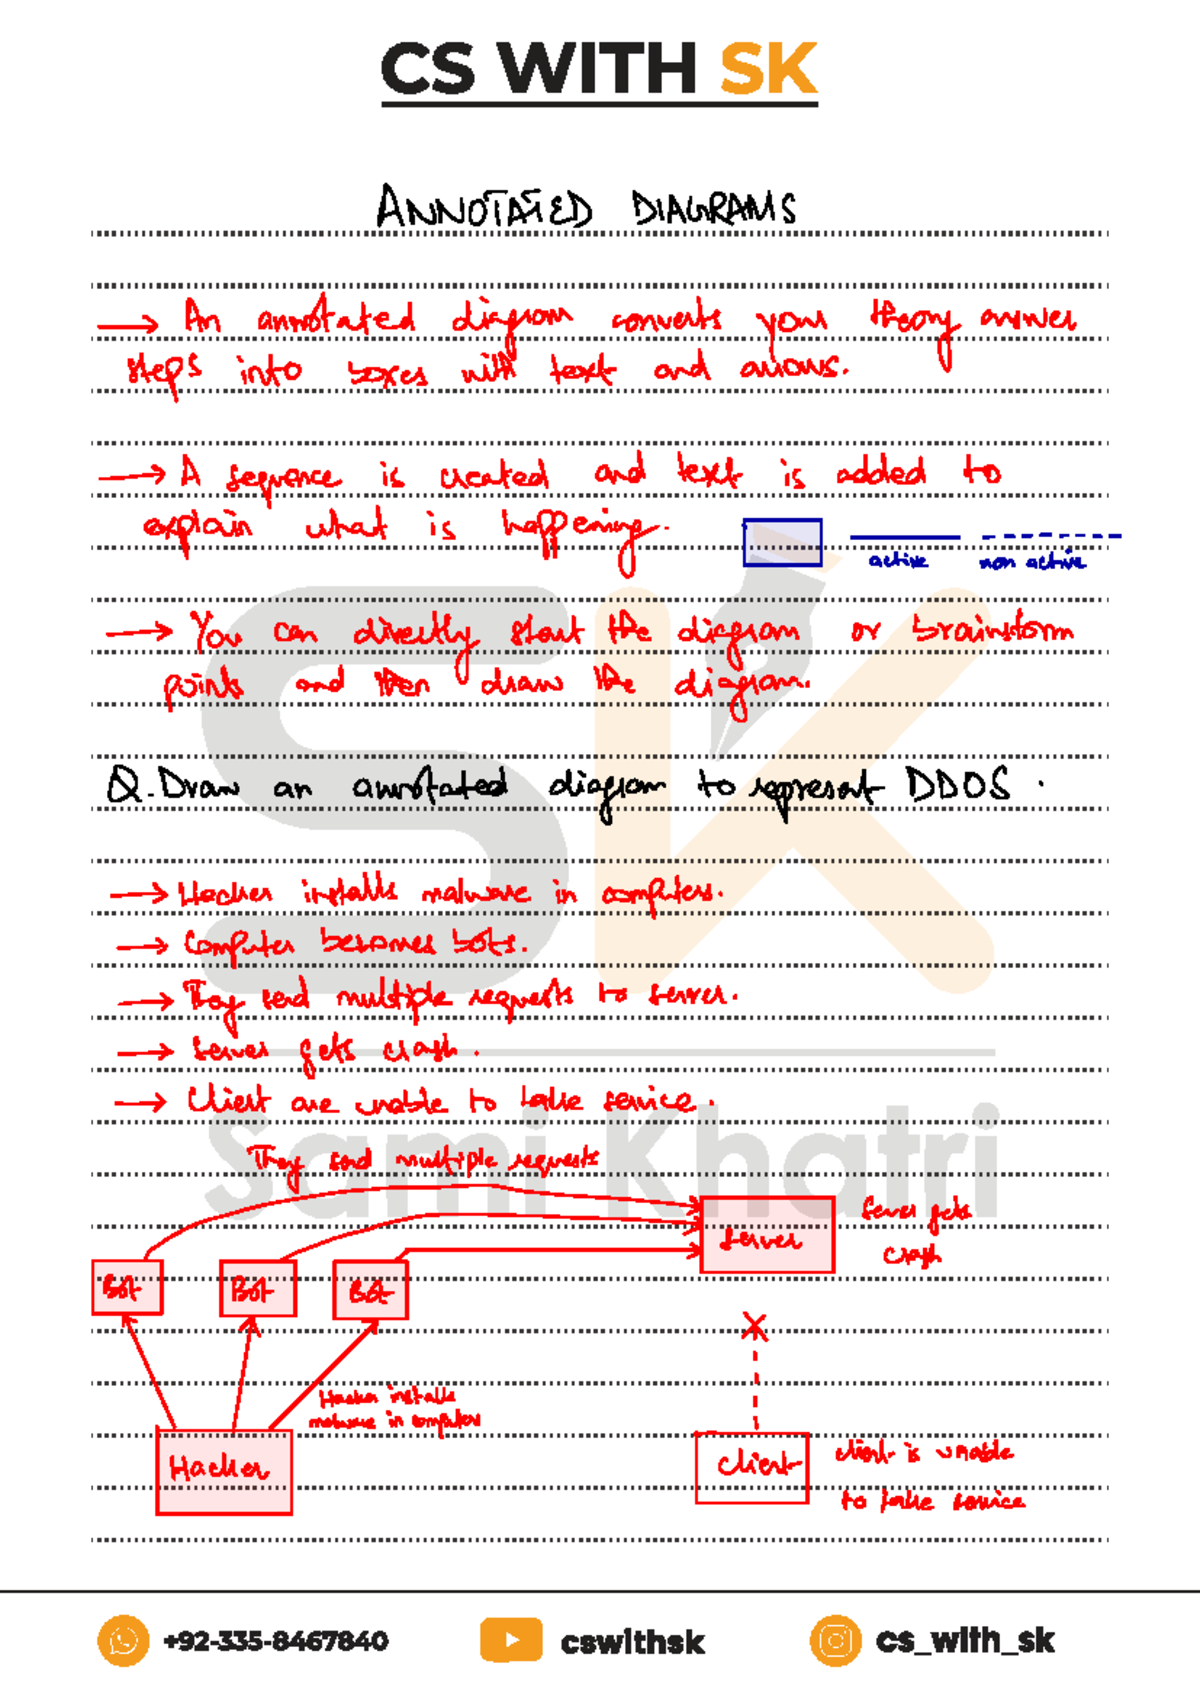 CS WITH SK
ANNOTATED DIAGRAMS
→ An annotated diagram converts your theory answer
steps into boxes with text and arrows.
→ A sequence is created and text is added to
explain what is happening.
active
non active
→ You can directly start the diagram or brainstorm
points and then draw the diagram.
Q. Draw an annotated diagram to represent DDOS.
→ Hacker installs malware in computers.
→ Computer becomes bots.
→ They send multiple requests to server.
→ Server gets crash.
→ Client are unable to take service.
Sami Khatri
They send multiple requests
Server
Server gets
crash
Bot
Bot
Bot
Hacker installs
malware in computers
Hacker
Client
client is unable
to take service
+92-335-8467840
cswithsk
cs_with_sk